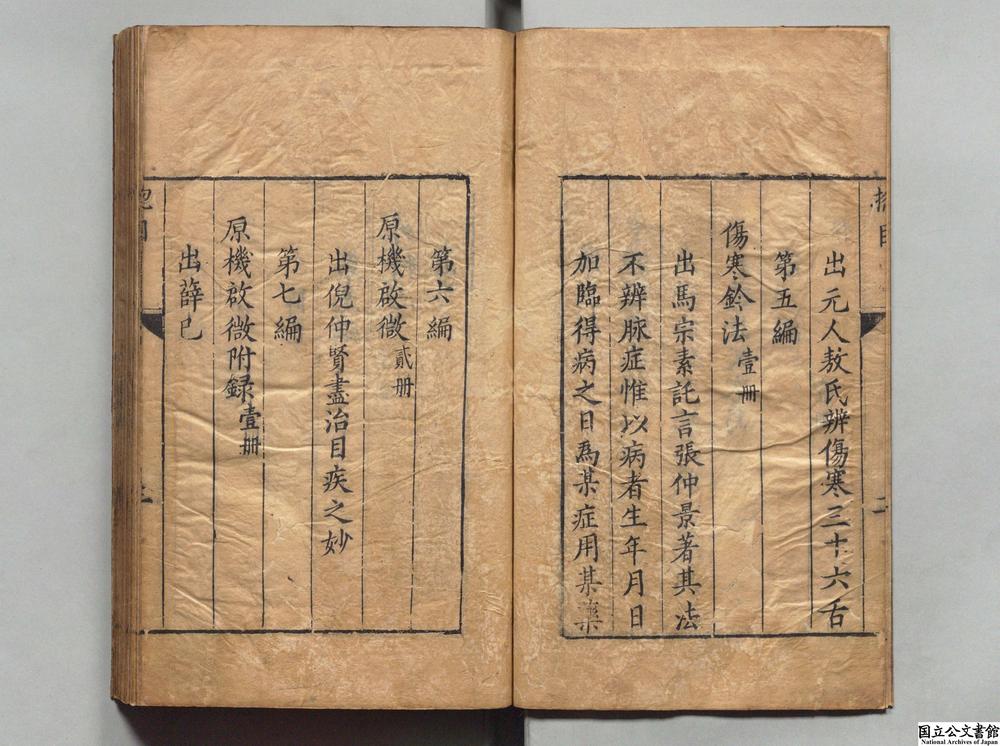 出元人敖氏辨傷寒三十六舌
第五編
傷寒鈐法壹册
出馬宗素託言張仲景著其法
不辨脉症惟以病者生年月日
加臨得病之日為某症用某藥
第六編
原機啟微貳册
出倪仲賢盡治目疾之妙
第七編
原機啟微附録壹册
出薛已
国立公文書館
National Archives of Japan